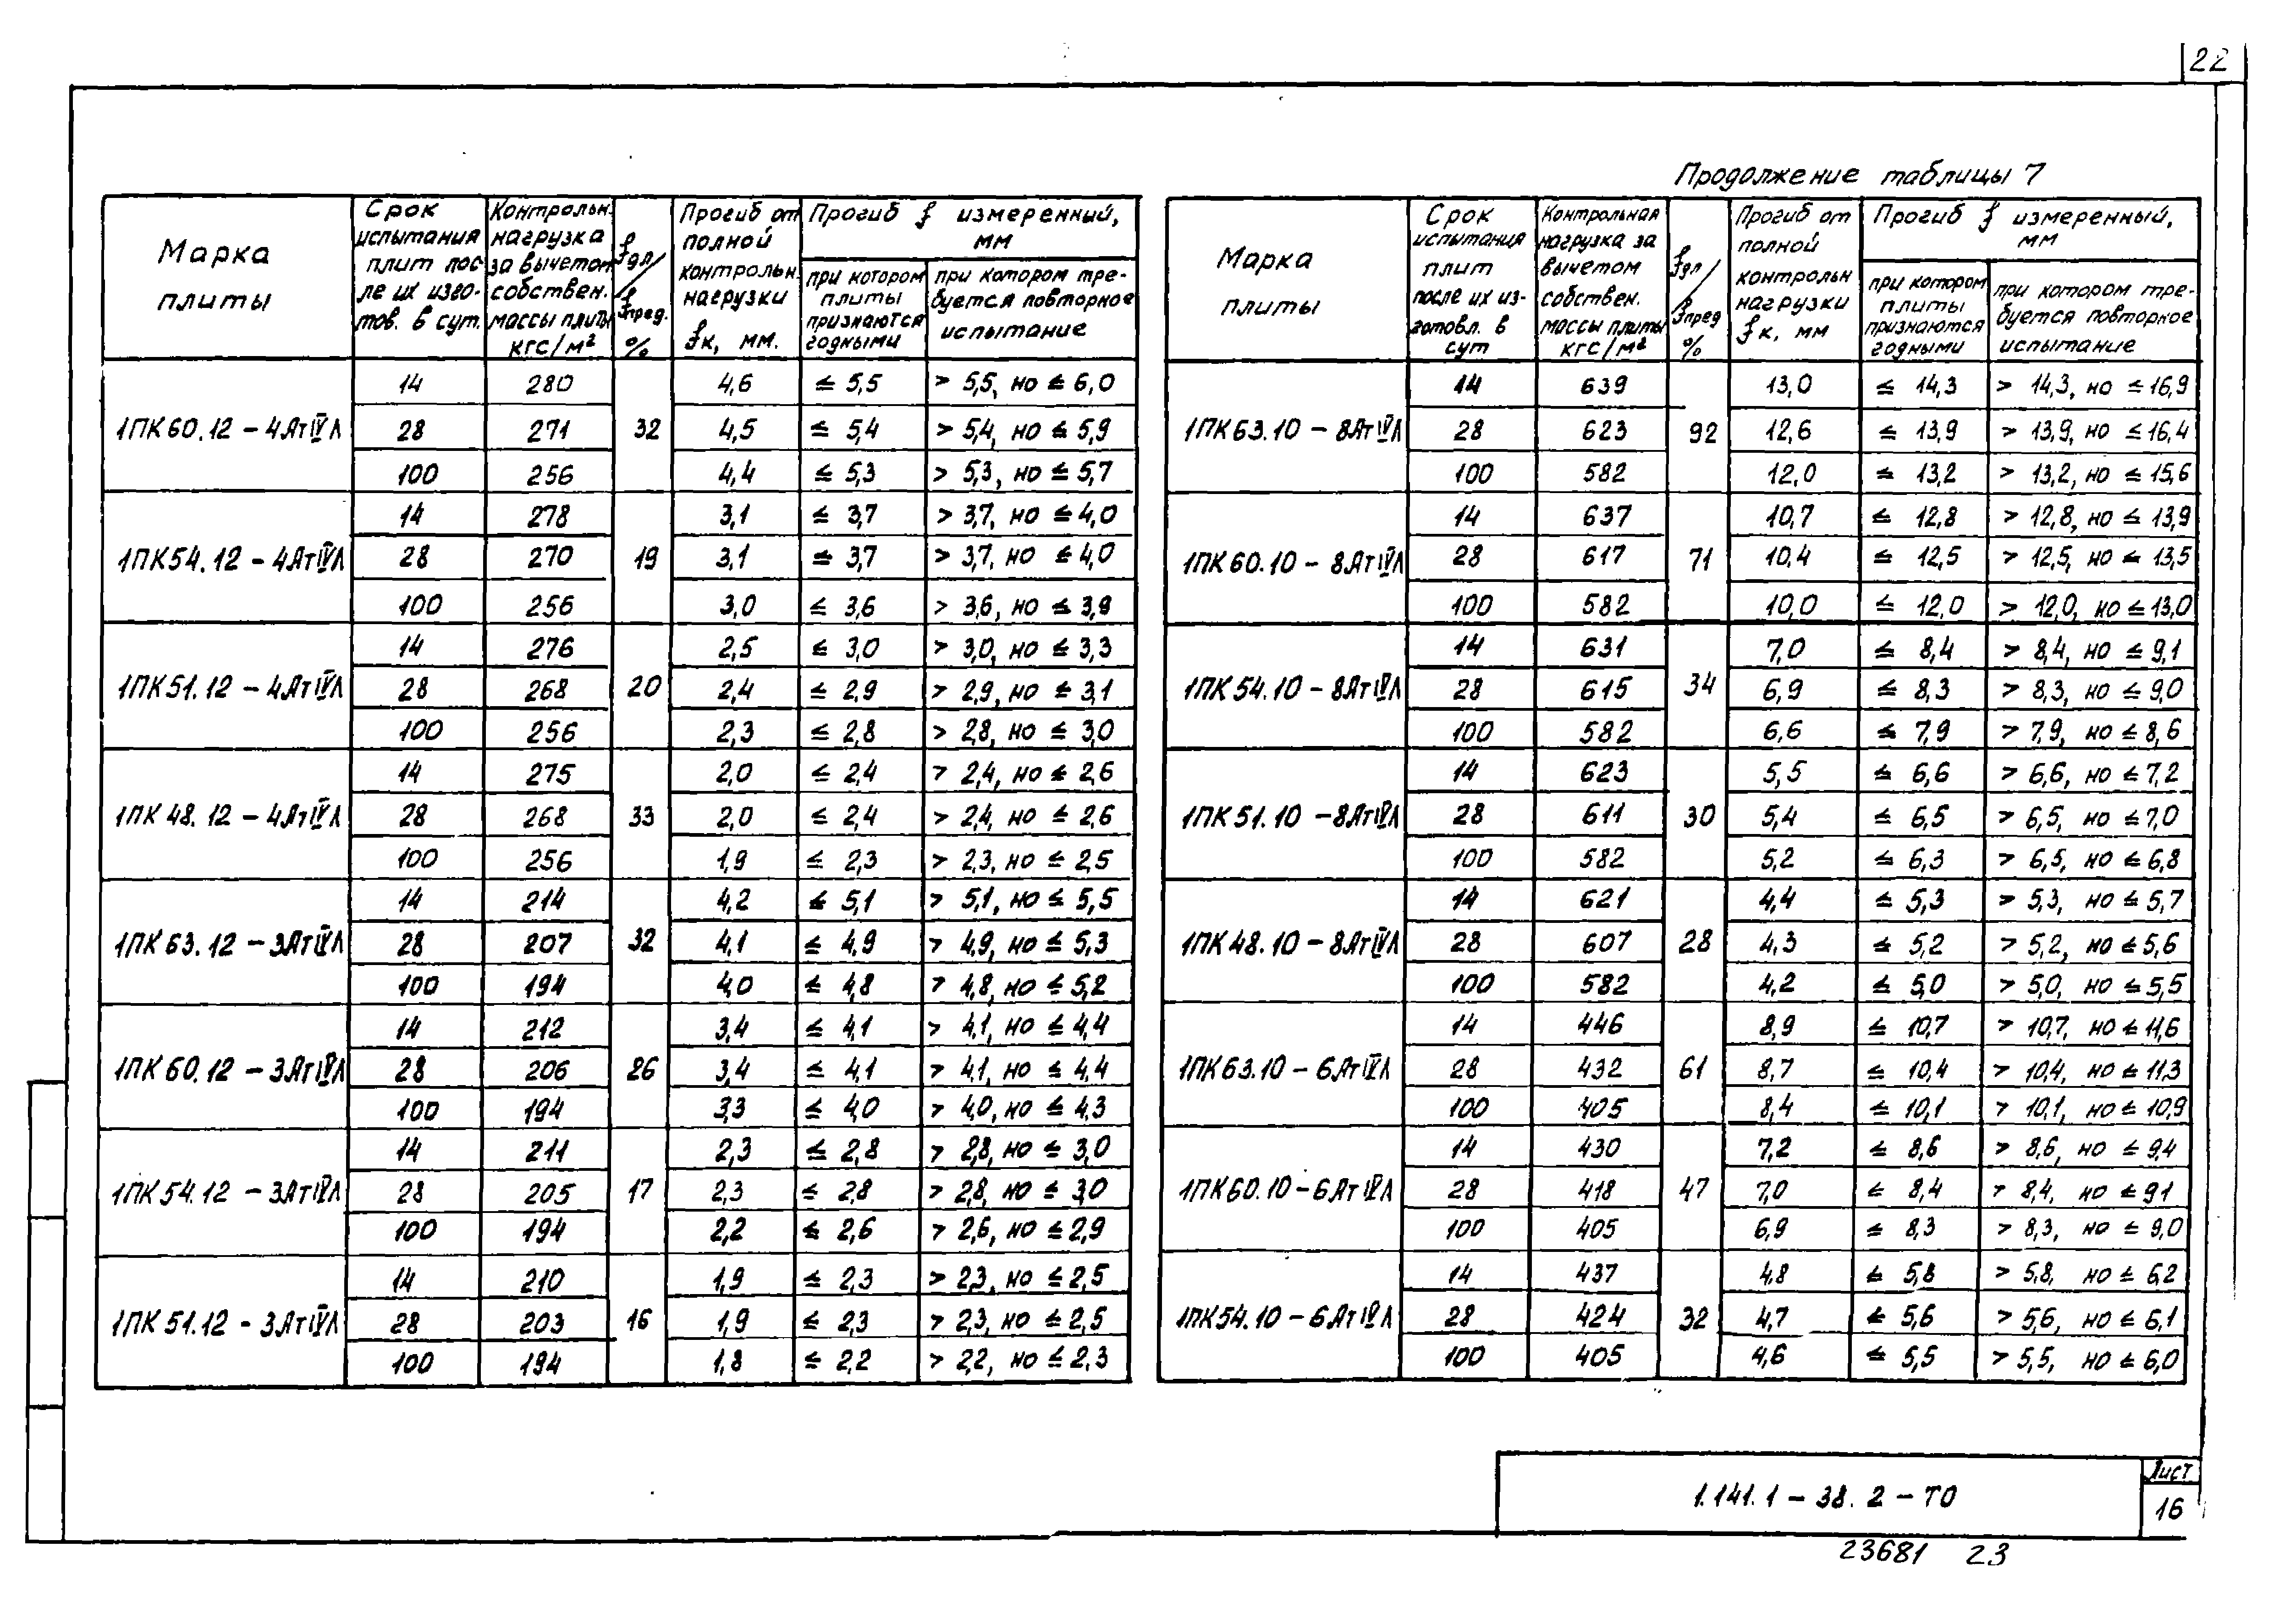 22
Продолжение таблицы 7
Марка плиты | Срок испытания плит после их изготов. в сут. | Контрольн. нагрузка за вычетом собствен. массы плиты кгс/м² | fдл/fпред. % | Прогиб от полной контрольн. нагрузки fк, мм. | Прогиб f измеренный, мм
при котором плиты признаются годными | при котором требуется повторное испытание
14 280 4,6 ≤ 5,5 > 5,5, но ≤ 6,0
1ПК60.12 – 4АтIVЛ 28 271 32 4,5 ≤ 5,4 > 5,4, но ≤ 5,9
100 256 4,4 ≤ 5,3 > 5,3, но ≤ 5,7
14 278 3,1 ≤ 3,7 > 3,7, но ≤ 4,0
1ПК54.12 – 4АтIVЛ 28 270 19 3,1 ≤ 3,7 > 3,7, но ≤ 4,0
100 256 3,0 ≤ 3,6 > 3,6, но ≤ 3,9
14 276 2,5 ≤ 3,0 > 3,0, но ≤ 3,3
1ПК51.12 – 4АтIVЛ 28 268 20 2,4 ≤ 2,9 > 2,9, но ≤ 3,1
100 256 2,3 ≤ 2,8 > 2,8, но ≤ 3,0
14 275 2,0 ≤ 2,4 > 2,4, но ≤ 2,6
1ПК48.12 – 4АтIVЛ 28 268 33 2,0 ≤ 2,4 > 2,4, но ≤ 2,6
100 256 1,9 ≤ 2,3 > 2,3, но ≤ 2,5
14 214 4,2 ≤ 5,1 > 5,1, но ≤ 5,5
1ПК63.12 – 3АтIVЛ 28 207 32 4,1 ≤ 4,9 > 4,9, но ≤ 5,3
100 194 4,0 ≤ 4,8 > 4,8, но ≤ 5,2
14 212 3,4 ≤ 4,1 > 4,1, но ≤ 4,4
1ПК60.12 – 3АтIVЛ 28 206 26 3,4 ≤ 4,1 > 4,1, но ≤ 4,4
100 194 3,3 ≤ 4,0 > 4,0, но ≤ 4,3
14 211 2,3 ≤ 2,8 > 2,8, но ≤ 3,0
1ПК54.12 – 3АтIVЛ 28 205 17 2,3 ≤ 2,8 > 2,8, но ≤ 3,0
100 194 2,2 ≤ 2,6 > 2,6, но ≤ 2,9
14 210 1,9 ≤ 2,3 > 2,3, но ≤ 2,5
1ПК51.12 – 3АтIVЛ 28 203 16 1,9 ≤ 2,3 > 2,3, но ≤ 2,5
100 194 1,8 ≤ 2,2 > 2,2, но ≤ 2,3
Марка плиты | Срок испытания плит после их изготовл. в сут | Контрольная нагрузка за вычетом собствен. массы плиты кгс/м² | fдл/fпред % | Прогиб от полной контрольн нагрузки fк, мм | Прогиб f измеренный, мм
при котором плиты признаются годными | при котором требуется повторное испытание
14 639 13,0 ≤ 14,3 > 14,3, но ≤ 16,9
1ПК63.10 – 8АтIVЛ 28 623 92 12,6 ≤ 13,9 > 13,9, но ≤ 16,4
100 582 12,0 ≤ 13,2 > 13,2, но ≤ 15,6
14 637 10,7 ≤ 12,8 > 12,8, но ≤ 13,9
1ПК60.10 – 8АтIVЛ 28 617 71 10,4 ≤ 12,5 > 12,5, но ≤ 13,5
100 582 10,0 ≤ 12,0 > 12,0, но ≤ 13,0
14 631 7,0 ≤ 8,4 > 8,4, но ≤ 9,1
1ПК54.10 – 8АтIVЛ 28 615 34 6,9 ≤ 8,3 > 8,3, но ≤ 9,0
100 582 6,6 ≤ 7,9 > 7,9, но ≤ 8,6
14 623 5,5 ≤ 6,6 > 6,6, но ≤ 7,2
1ПК51.10 – 8АтIVЛ 28 611 30 5,4 ≤ 6,5 > 6,5, но ≤ 7,0
100 582 5,2 ≤ 6,3 > 6,5, но ≤ 6,8
14 621 4,4 ≤ 5,3 > 5,3, но ≤ 5,7
1ПК48.10 – 8АтIVЛ 28 607 28 4,3 ≤ 5,2 > 5,2, но ≤ 5,6
100 582 4,2 ≤ 5,0 > 5,0, но ≤ 5,5
14 446 8,9 ≤ 10,7 > 10,7, но ≤ 11,6
1ПК63.10 – 6АтIVЛ 28 432 61 8,7 ≤ 10,4 > 10,4, но ≤ 11,3
100 405 8,4 ≤ 10,1 > 10,1, но ≤ 10,9
14 430 7,2 ≤ 8,6 > 8,6, но ≤ 9,4
1ПК60.10 – 6АтIVЛ 28 418 47 7,0 ≤ 8,4 > 8,4, но ≤ 9,1
100 405 6,9 ≤ 8,3 > 8,3, но ≤ 9,0
14 437 4,8 ≤ 5,8 > 5,8, но ≤ 6,2
1ПК54.10 – 6АтIVЛ 28 424 32 4,7 ≤ 5,6 > 5,6, но ≤ 6,1
100 405 4,6 ≤ 5,5 > 5,5, но ≤ 6,0
1.141.1 – 38. 2 – ТО
Лист
16
23681 23